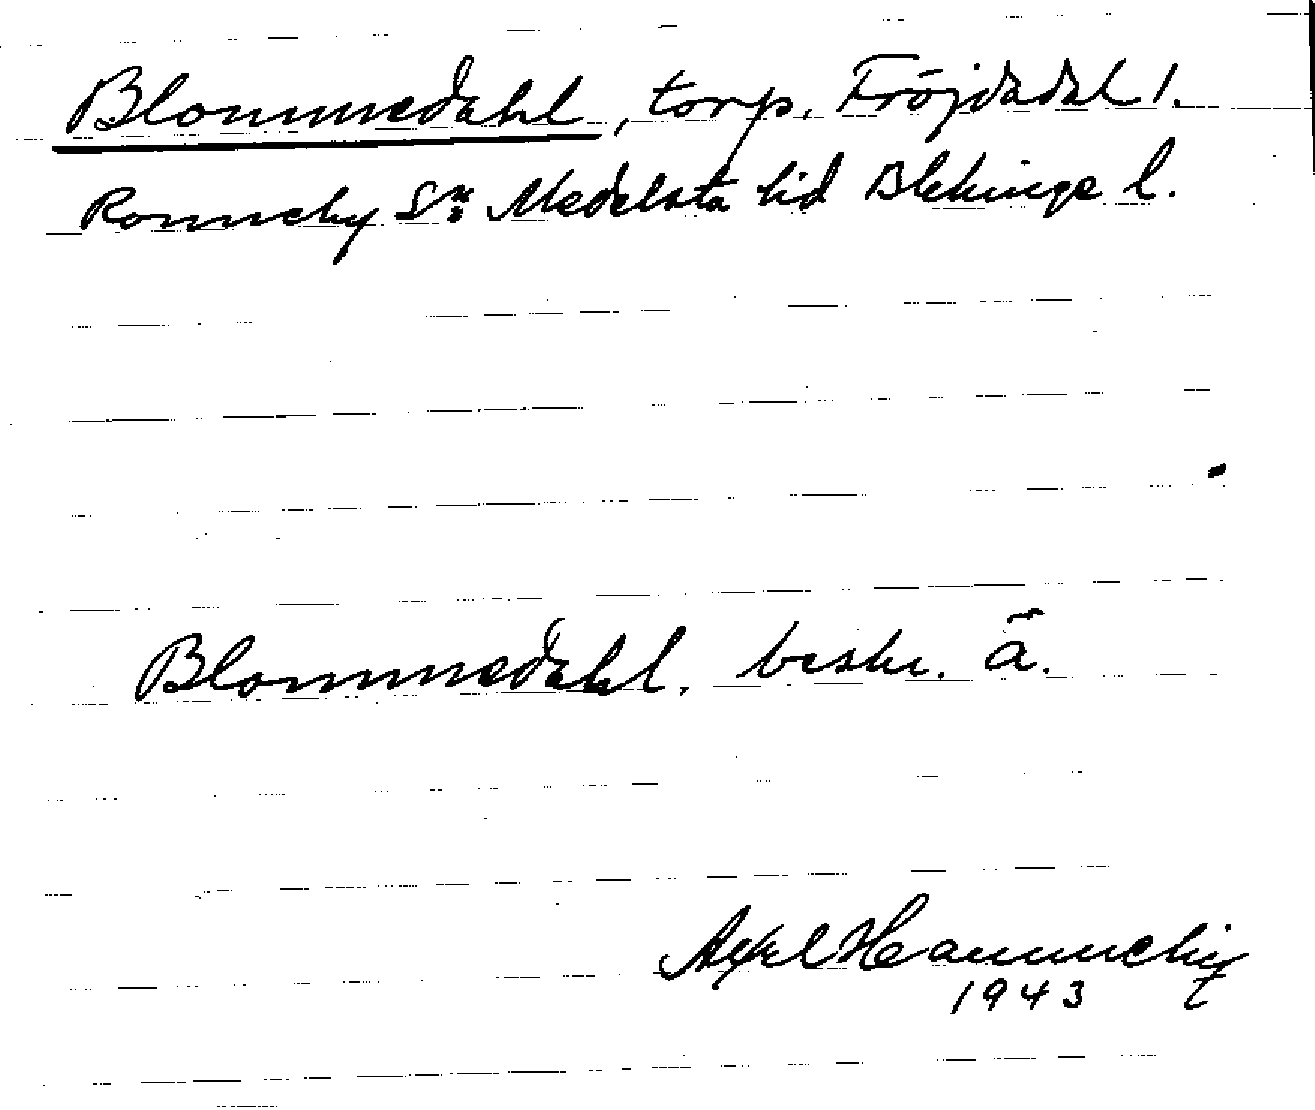 Blommedahl, torp, Fröjdadal 1.
Ronneby Sn: Medelsta hd Blekinge l.
Blommedahl. beskr. ä.
Axel Hannerby
1943